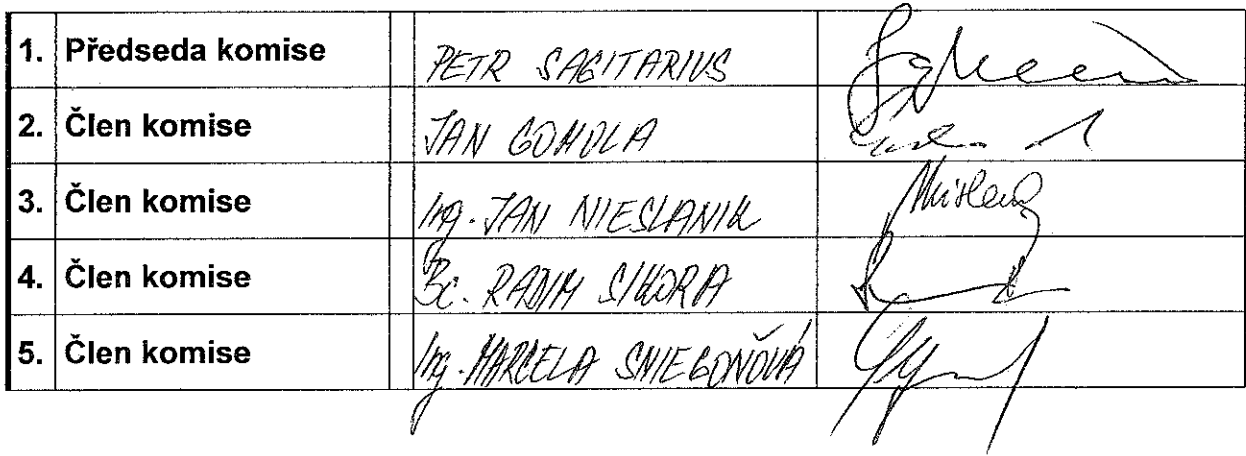 1. Předseda komise PETR SAGITARIUS
2. Člen komise JAN GOMOLA
3. Člen komise Ing. JAN NIESLANIK
4. Člen komise Bc. RADIM SIKORA
5. Člen komise Ing. MARCELA SNIEGOŇOVÁ